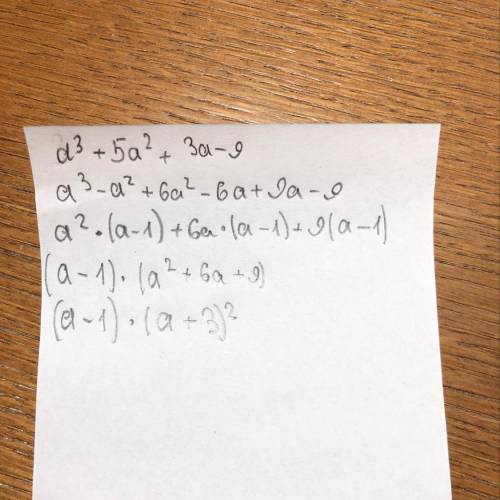 a³ + 5a² + 3a - 9
a³ - a² + 6a² - 6a + 9a - 9
a² · (a - 1) + 6a · (a - 1) + 9(a - 1)
(a - 1) · (a² + 6a + 9)
(a - 1) · (a + 3)²